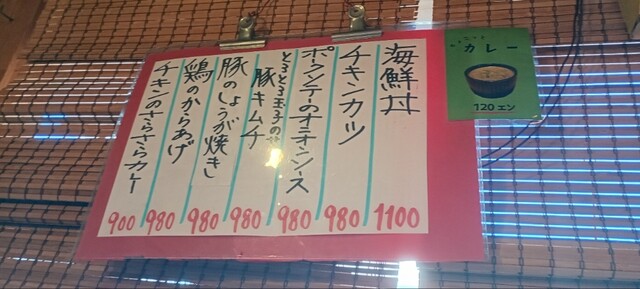 海鮮丼
1100
チキンカツ
980
ポークソテーのオニオンソース
980
とろとろ玉子のせ
豚キムチ
980
豚のしょうが焼き
980
鶏のからあげ
980
チキンのさらさらカレー
900
カレー
120エン